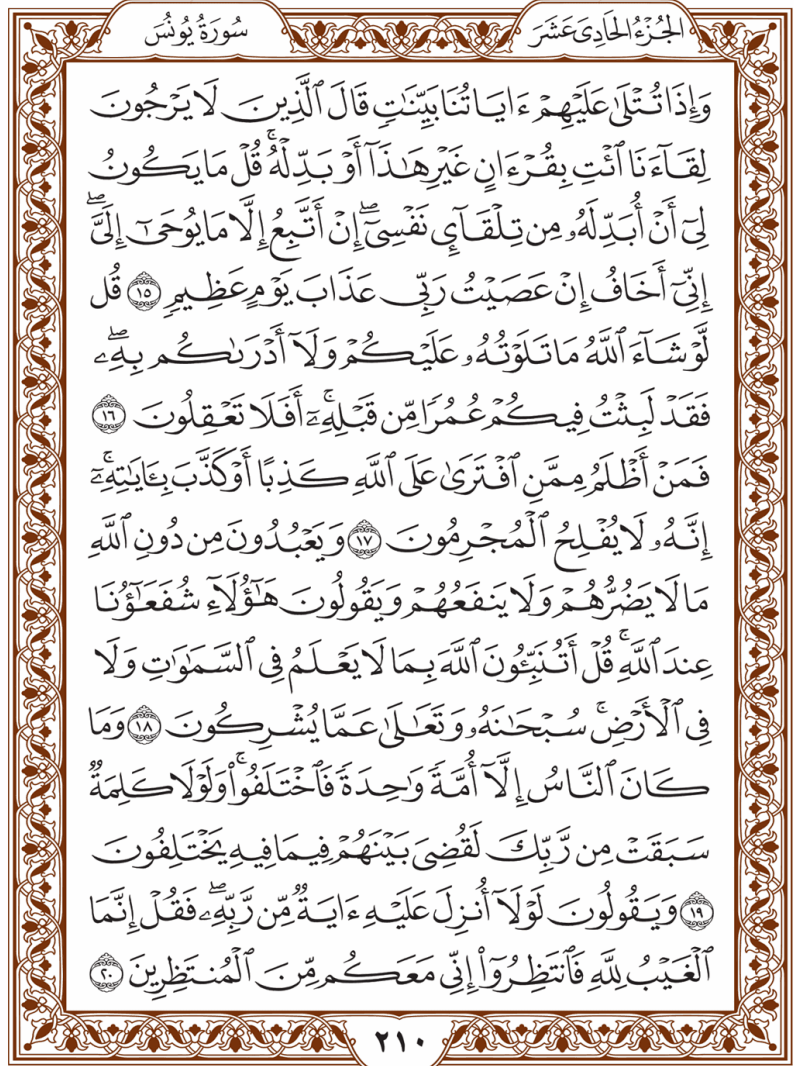 الجُزْءُ الحَادِىَ عَشَرَ
سُورَةُ يُونُسَ
وَإِذَا تُتْلَىٰ عَلَيْهِمْ ءَايَاتُنَا بَيِّنَٰتٍ قَالَ ٱلَّذِينَ لَا يَرْجُونَ
لِقَآءَنَا ٱئْتِ بِقُرْءَانٍ غَيْرِ هَٰذَآ أَوْ بَدِّلْهُ ۚ قُلْ مَا يَكُونُ
لِىٓ أَنْ أُبَدِّلَهُۥ مِن تِلْقَآئِ نَفْسِىٓ ۖ إِنْ أَتَّبِعُ إِلَّا مَا يُوحَىٰٓ إِلَىَّ ۖ
إِنِّىٓ أَخَافُ إِنْ عَصَيْتُ رَبِّى عَذَابَ يَوْمٍ عَظِيمٍ ١٥ قُل
لَّوْ شَآءَ ٱللَّهُ مَا تَلَوْتُهُۥ عَلَيْكُمْ وَلَآ أَدْرَىٰكُم بِهِۦ ۖ
فَقَدْ لَبِثْتُ فِيكُمْ عُمُرًا مِّن قَبْلِهِۦٓ ۚ أَفَلَا تَعْقِلُونَ ١٦
فَمَنْ أَظْلَمُ مِمَّنِ ٱفْتَرَىٰ عَلَى ٱللَّهِ كَذِبًا أَوْ كَذَّبَ بِـَٔايَٰتِهِۦٓ ۚ
إِنَّهُۥ لَا يُفْلِحُ ٱلْمُجْرِمُونَ ١٧ وَيَعْبُدُونَ مِن دُونِ ٱللَّهِ
مَا لَا يَضُرُّهُمْ وَلَا يَنفَعُهُمْ وَيَقُولُونَ هَٰٓؤُلَآءِ شُفَعَٰٓؤُنَا
عِندَ ٱللَّهِ ۚ قُلْ أَتُنَبِّـُٔونَ ٱللَّهَ بِمَا لَا يَعْلَمُ فِى ٱلسَّمَٰوَٰتِ وَلَا
فِى ٱلْأَرْضِ ۚ سُبْحَٰنَهُۥ وَتَعَٰلَىٰ عَمَّا يُشْرِكُونَ ١٨ وَمَا
كَانَ ٱلنَّاسُ إِلَّآ أُمَّةً وَٰحِدَةً فَٱخْتَلَفُوا۟ ۚ وَلَوْلَا كَلِمَةٌ
سَبَقَتْ مِن رَّبِّكَ لَقُضِىَ بَيْنَهُمْ فِيمَا فِيهِ يَخْتَلِفُونَ
١٩ وَيَقُولُونَ لَوْلَآ أُنزِلَ عَلَيْهِ ءَايَةٌ مِّن رَّبِّهِۦ ۖ فَقُلْ إِنَّمَا
ٱلْغَيْبُ لِلَّهِ فَٱنتَظِرُوٓا۟ إِنِّى مَعَكُم مِّنَ ٱلْمُنتَظِرِينَ ٢٠
٢١٠